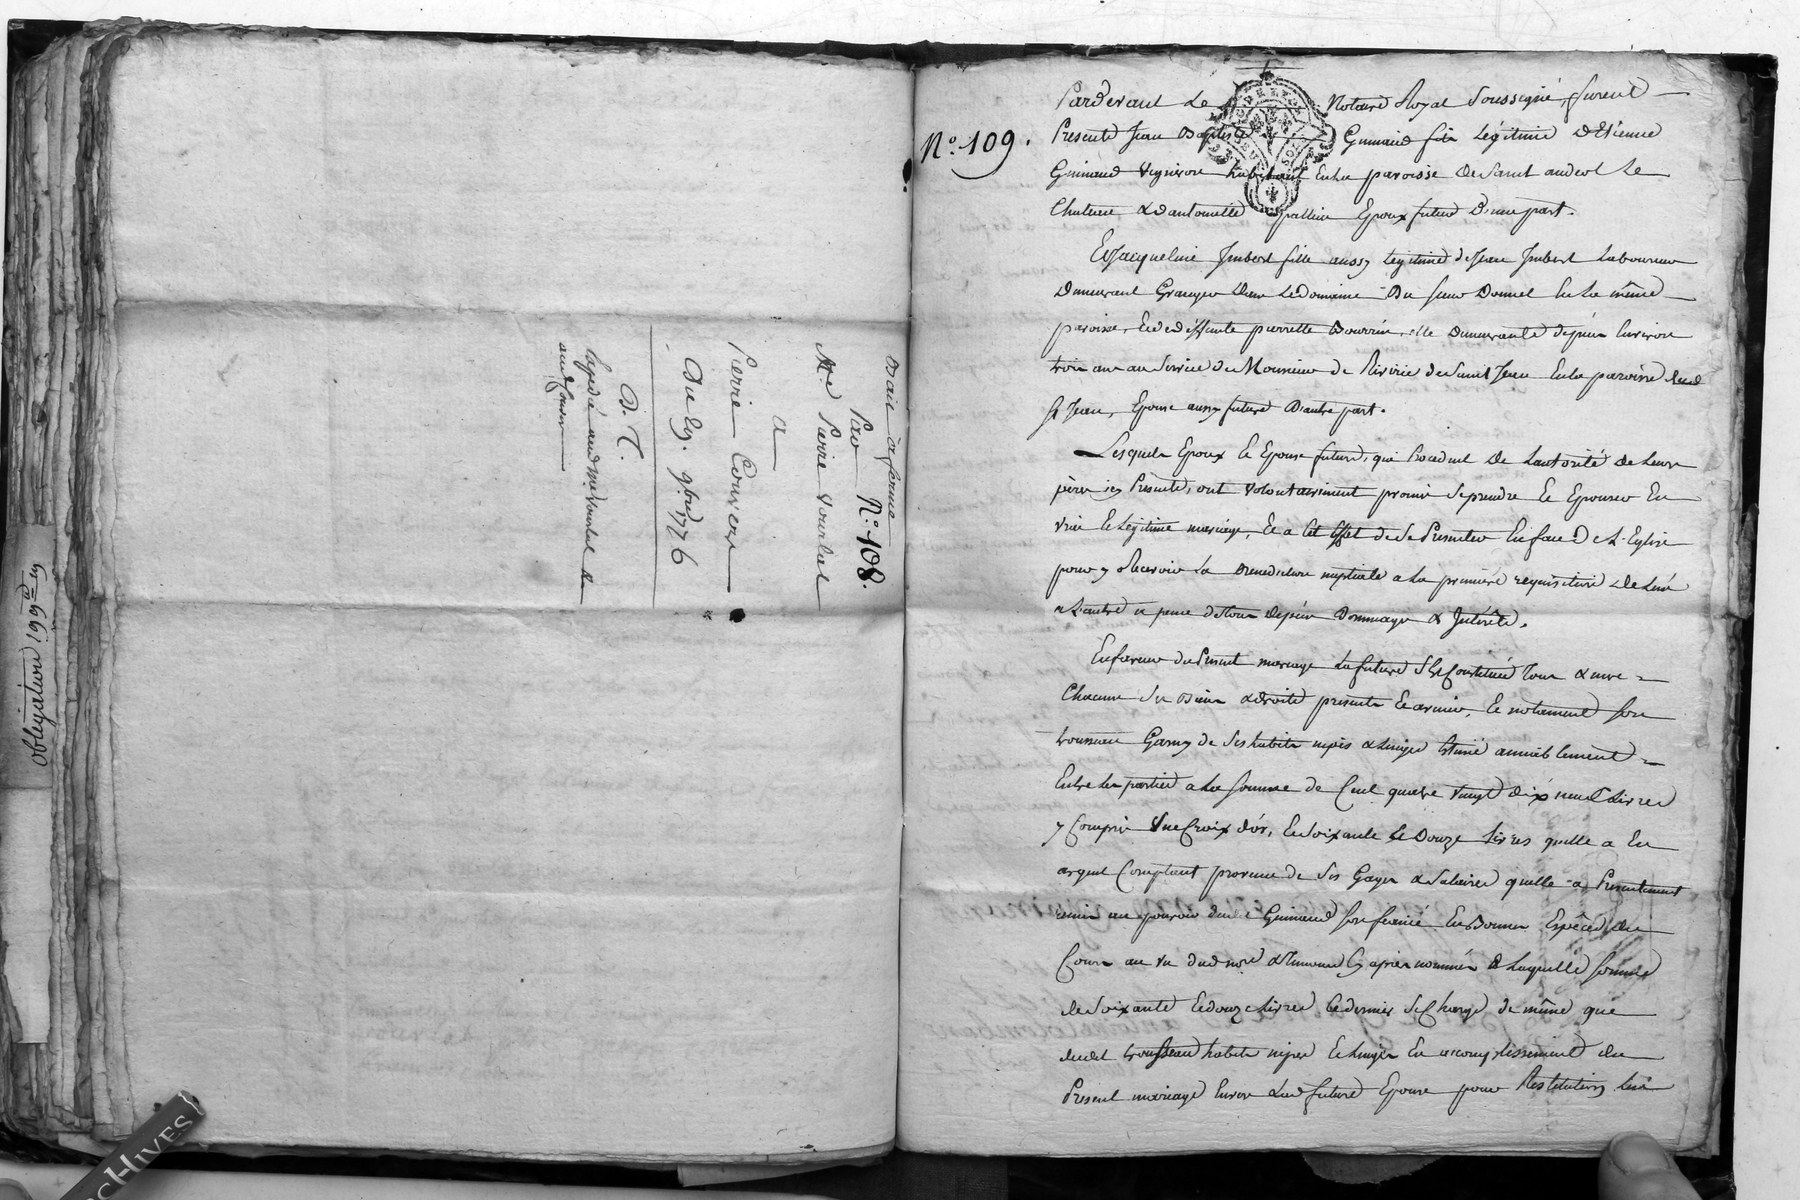 Obligation 199
Bail à ferme
N°. 108.
Par
Me Pierre Vourlat
a
Pierre Couvert
Du 29. 9bre 1776
D. T.
Expedié aud Me Vourlat &
aud Couvert
ARCHIVES
N°. 109.
Pardevant Le Notaire Royal Soussigné, furent
Presents Jean Baptiste Guinand fils Légitime d'Etienne
Guinand vigneron habitant en la paroisse de Saint andeol le
Chateau & d'antoinette Epoux futur D'une part.
Et Jacqueline Imbert fille aussy legitime de Jean Imbert Laboureur
Demeurant Granger dans le Domaine du sieur Donnet en la même
paroisse, Et de deffunte pierrette Bourrin, elle demeurante depuis Environ
trois ans au service de Monsieur de Riverie de Saint Jean en la paroisse dud
St Jean, Epouse aussy future D'autre part.
Lesquels Epoux et Epouse futurs, qui Procedent de Lautorité de Leurs
pères icy Presents, ont volontairement promis se prendre et Epouser en
vrai et Légitime mariage, et a cet effet de se Presenter en face de L'Eglise
pour y Recevoir la Benediction nuptiale a la première requisition de L'un
ou L'autre a peine de tous depens Dommages & Interêts.
En faveur du Present mariage la future S'est Constituée Tous & uns
Chacuns ses Biens & droits presents et avenir, et notament son
trousseau Garny de ses habits nipes & linges Estimé amiablement
Entre les parties a la somme de Cent quatre vingt dix neuf Livres
y Compris Une Croix d'or, et soixante et Douze Livres quelle a en
argent Comptant provenu de ses Gages & Salaires quelle a Presentement
remis au pouvoir dudt Guinand son fiancé en Bonnes Espêces du
Cours au vu dud nore & Temoins cy après nommés de Laquelle somme
de Soixante et douze Livres ce dernier se Charge de même que
dudit trousseau habits nipes et linges en accomplissement du
Present mariage Envers Lad future Epouse pour Restitution lui